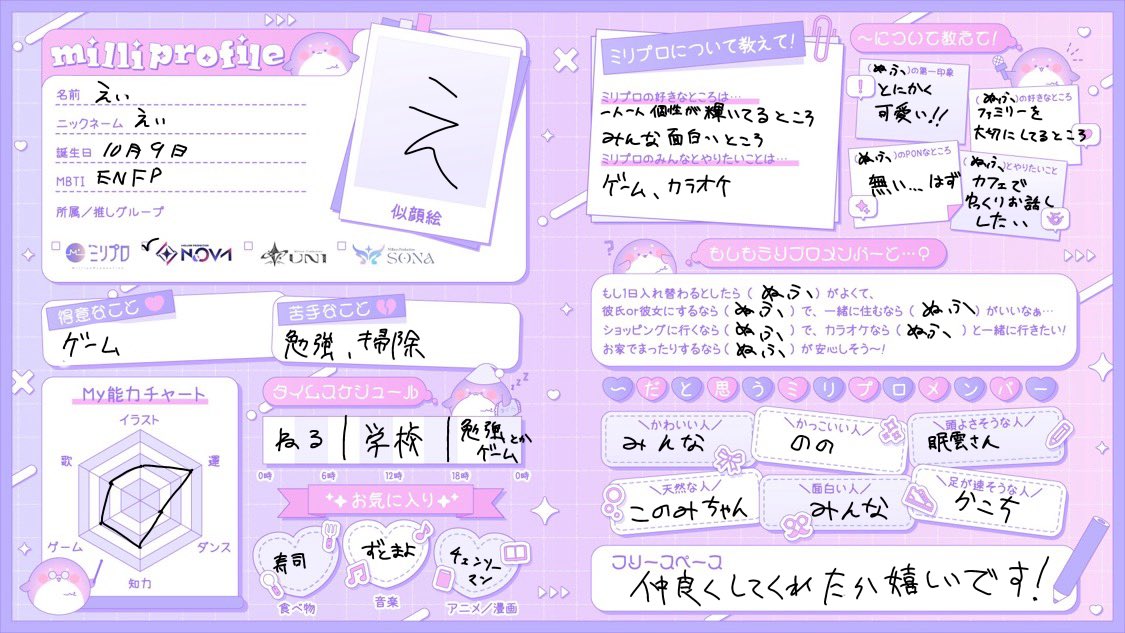 milliprofile
名前 えぃ
ニックネーム えぃ
誕生日 10月9日
MBTI ENFP
所属／推しグループ
ミリプロ NOVA UNI SONA
似顔絵
得意なこと
ゲーム
苦手なこと
勉強、掃除
My能力チャート
イラスト
運
ダンス
知力
ゲーム
歌
タイムスケジュール
ねる 学校 勉強とかゲーム
0時 6時 12時 18時 0時
お気に入り
寿司
食べ物
ずとまよ
音楽
チェンソーマン
アニメ／漫画
ミリプロについて教えて！
ミリプロの好きなところは…
一人一人個性が輝いてるところ
みんな面白いところ
ミリプロのみんなとやりたいことは…
ゲーム、カラオケ
〜について教えて！
（ぬふぃ）の第一印象
とにかく
可愛い！！
（ぬふぃ）の好きなところ
ファミリーを
大切にしてるところ
（ぬふぃ）のPONなところ
無い…はず
（ぬふぃ）とやりたいこと
カフェで
ゆっくりお話し
したい
もしもミリプロメンバーと…？
もし1日入れ替わるとしたら（ぬふぃ）がよくて、
彼氏or彼女にするなら（ぬふぃ）で、一緒に住むなら（ぬふぃ）がいいなぁ…
ショッピングに行くなら（ぬふぃ）で、カラオケなら（ぬふぃ）と一緒に行きたい！
お家でまったりするなら（ぬふぃ）が安心しそう〜！
〜だと思うミリプロメンバー
＼かわいい人／
みんな
＼かっこいい人／
のの
＼頭よさそうな人／
眠雲さん
＼天然な人／
このみちゃん
＼面白い人／
みんな
＼足が速そうな人／
フリースペース
仲良くしてくれたら嬉しいです！